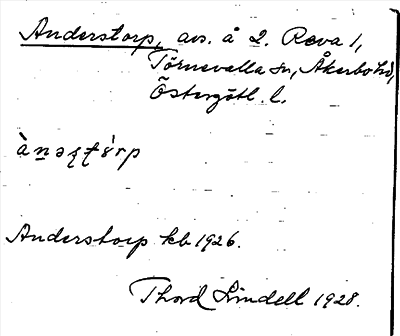 Anderstorp, avs. å 2. Reva 1,
Törnevalla sn, Åkerbo hd,
Östergötl. l.
Anderstorp kb 1926.
Thord Lindell 1928.